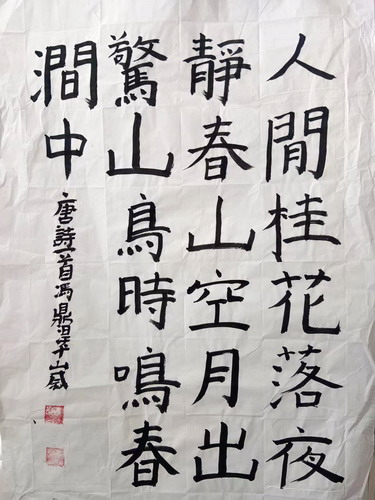 人閒桂花落夜
靜春山空月出
驚山鳥時鳴春
澗中
唐詩一首馮鼎